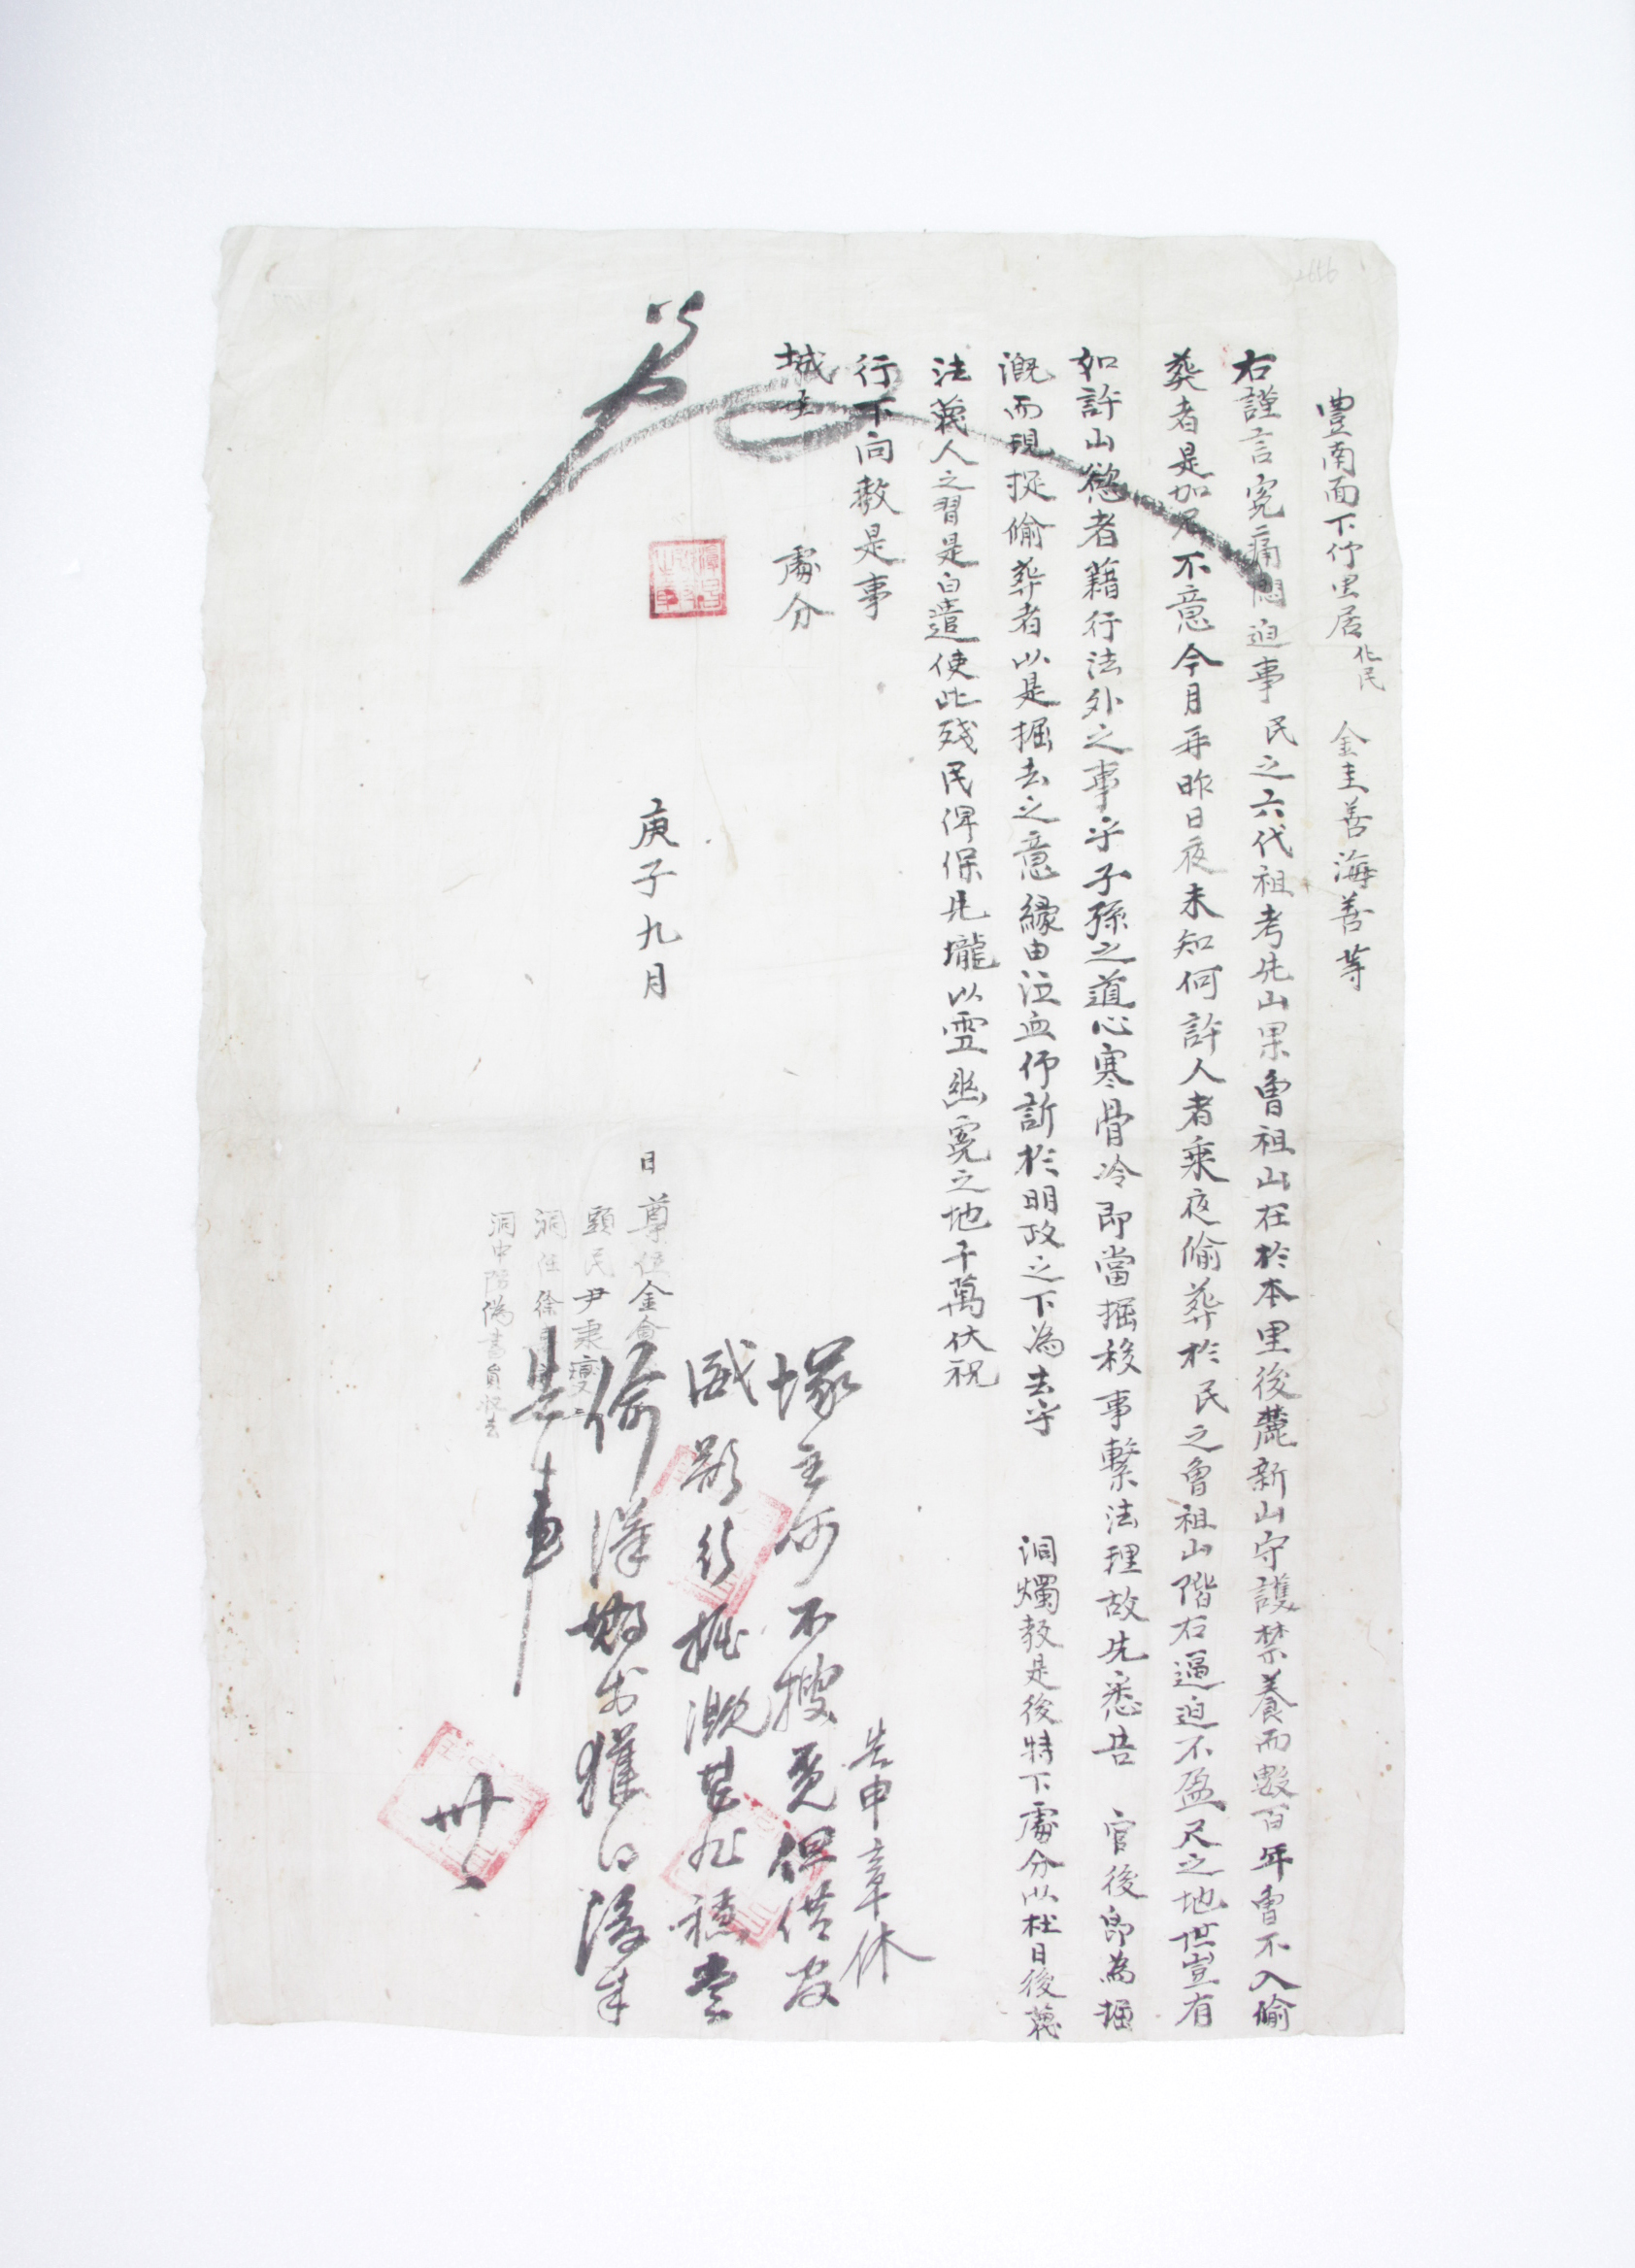 豊南面下竹里居化民 金圭善海善等
右謹言寃痛悶迫事民之六代祖考先山果曾祖山在於本里後麓新山守護禁養而數百年曾不入偷
葬者是加尼不意今月再昨日夜未知何許人者乘夜偷葬於民之曾祖山階右逼迫不盈尺之地世豈有
如許山慾者藉行法外之事乎子孫之道心寒骨冷即當掘移事繫法理故先悉告 官後即為掘
漑而現捉偷葬者以是掘去之意緣由泣血仰訴於明政之下為去乎 洞燭敎是後特下處分以杜日後蔑
法蔑人之習是白遣使此殘民俾保先壠以雪幽寃之地千萬伏祝
行下向敎是事
城主 處分
庚子九月
日 尊位金
頭民尹秉燮
洞任徐
洞中
告申章休
塚主何不搜覓但借官
威欲行掘漑其起穢當
偷漢期於獲得後來
告事
卄